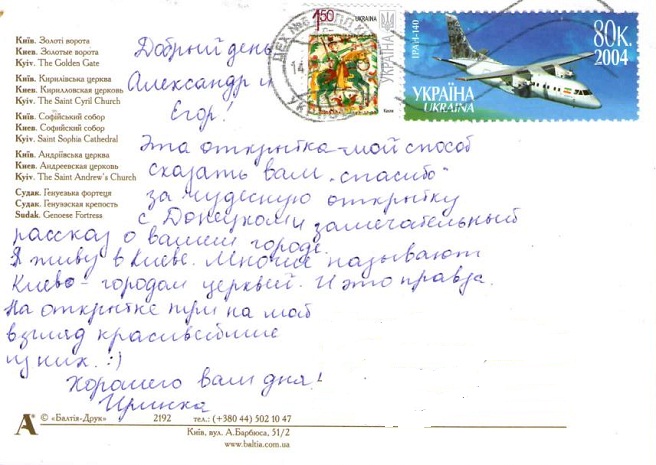 Київ. Золоті ворота
Киев. Золотые ворота
Kyiv. The Golden Gate
Київ. Кирилівська церква
Киев. Кирилловская церковь
Kyiv. The Saint Cyril Church
Київ. Софійський собор
Киев. Софийский собор
Kyiv. Saint Sophia Cathedral
Київ. Андріївська церква
Киев. Андреевская церковь
Kyiv. The Saint Andrew's Church
Судак. Генуезька фортеця
Судак. Генуэзская крепость
Sudak. Genoese Fortress
1.50 УКРАЇНА
УКРАЇНА
Київ
ІРАН-140
80К.
2004
УКРАЇНА
UKRAINA
Добрый день
Александр и
Егор!
Эта открытка – мой способ
сказать вам „спасибо“
за чудесную открытку
с Донецком и замечательный
рассказ о вашем городе.
Я живу в Киеве. Многие называют
Киево – городом церквей. И это правда.
На открытке три на мой
взгляд красивейшие
из них. :)
Хорошего вам дня!
Иринка
© «Балтія-Друк» 2192 тел.: (+380 44) 502 10 47
Київ, вул. А.Барбюса, 51/2
www.baltia.com.ua